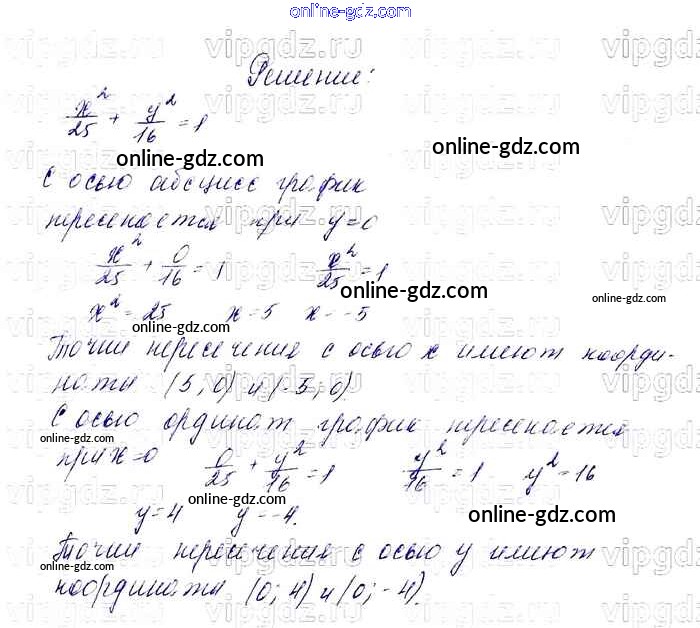 online-gdz.com
vipgdz.ru vipgdz.ru vipgdz.ru
Решение:
x²/25 + y²/16 = 1
online-gdz.com online-gdz.com
С осью абсцисс график
пересекается при y=0
x²/25 + 0/16 = 1 x²/25 = 1
online-gdz.com online-gdz.com
x² = 25 x=5 x=-5
online-gdz.com
Точки пересечения с осью x имеют коорди-
наты (5; 0) и (-5; 0)
online-gdz.com
С осью ординат график пересекается
online-gdz.com
при x=0 0/25 + y²/16 = 1 y²/16 = 1 y² = 16
online-gdz.com online-gdz.com
y=4 y=-4.
Точки пересечения с осью y имеют
online-gdz.com online-gdz.com
координаты (0; 4) и (0; -4).